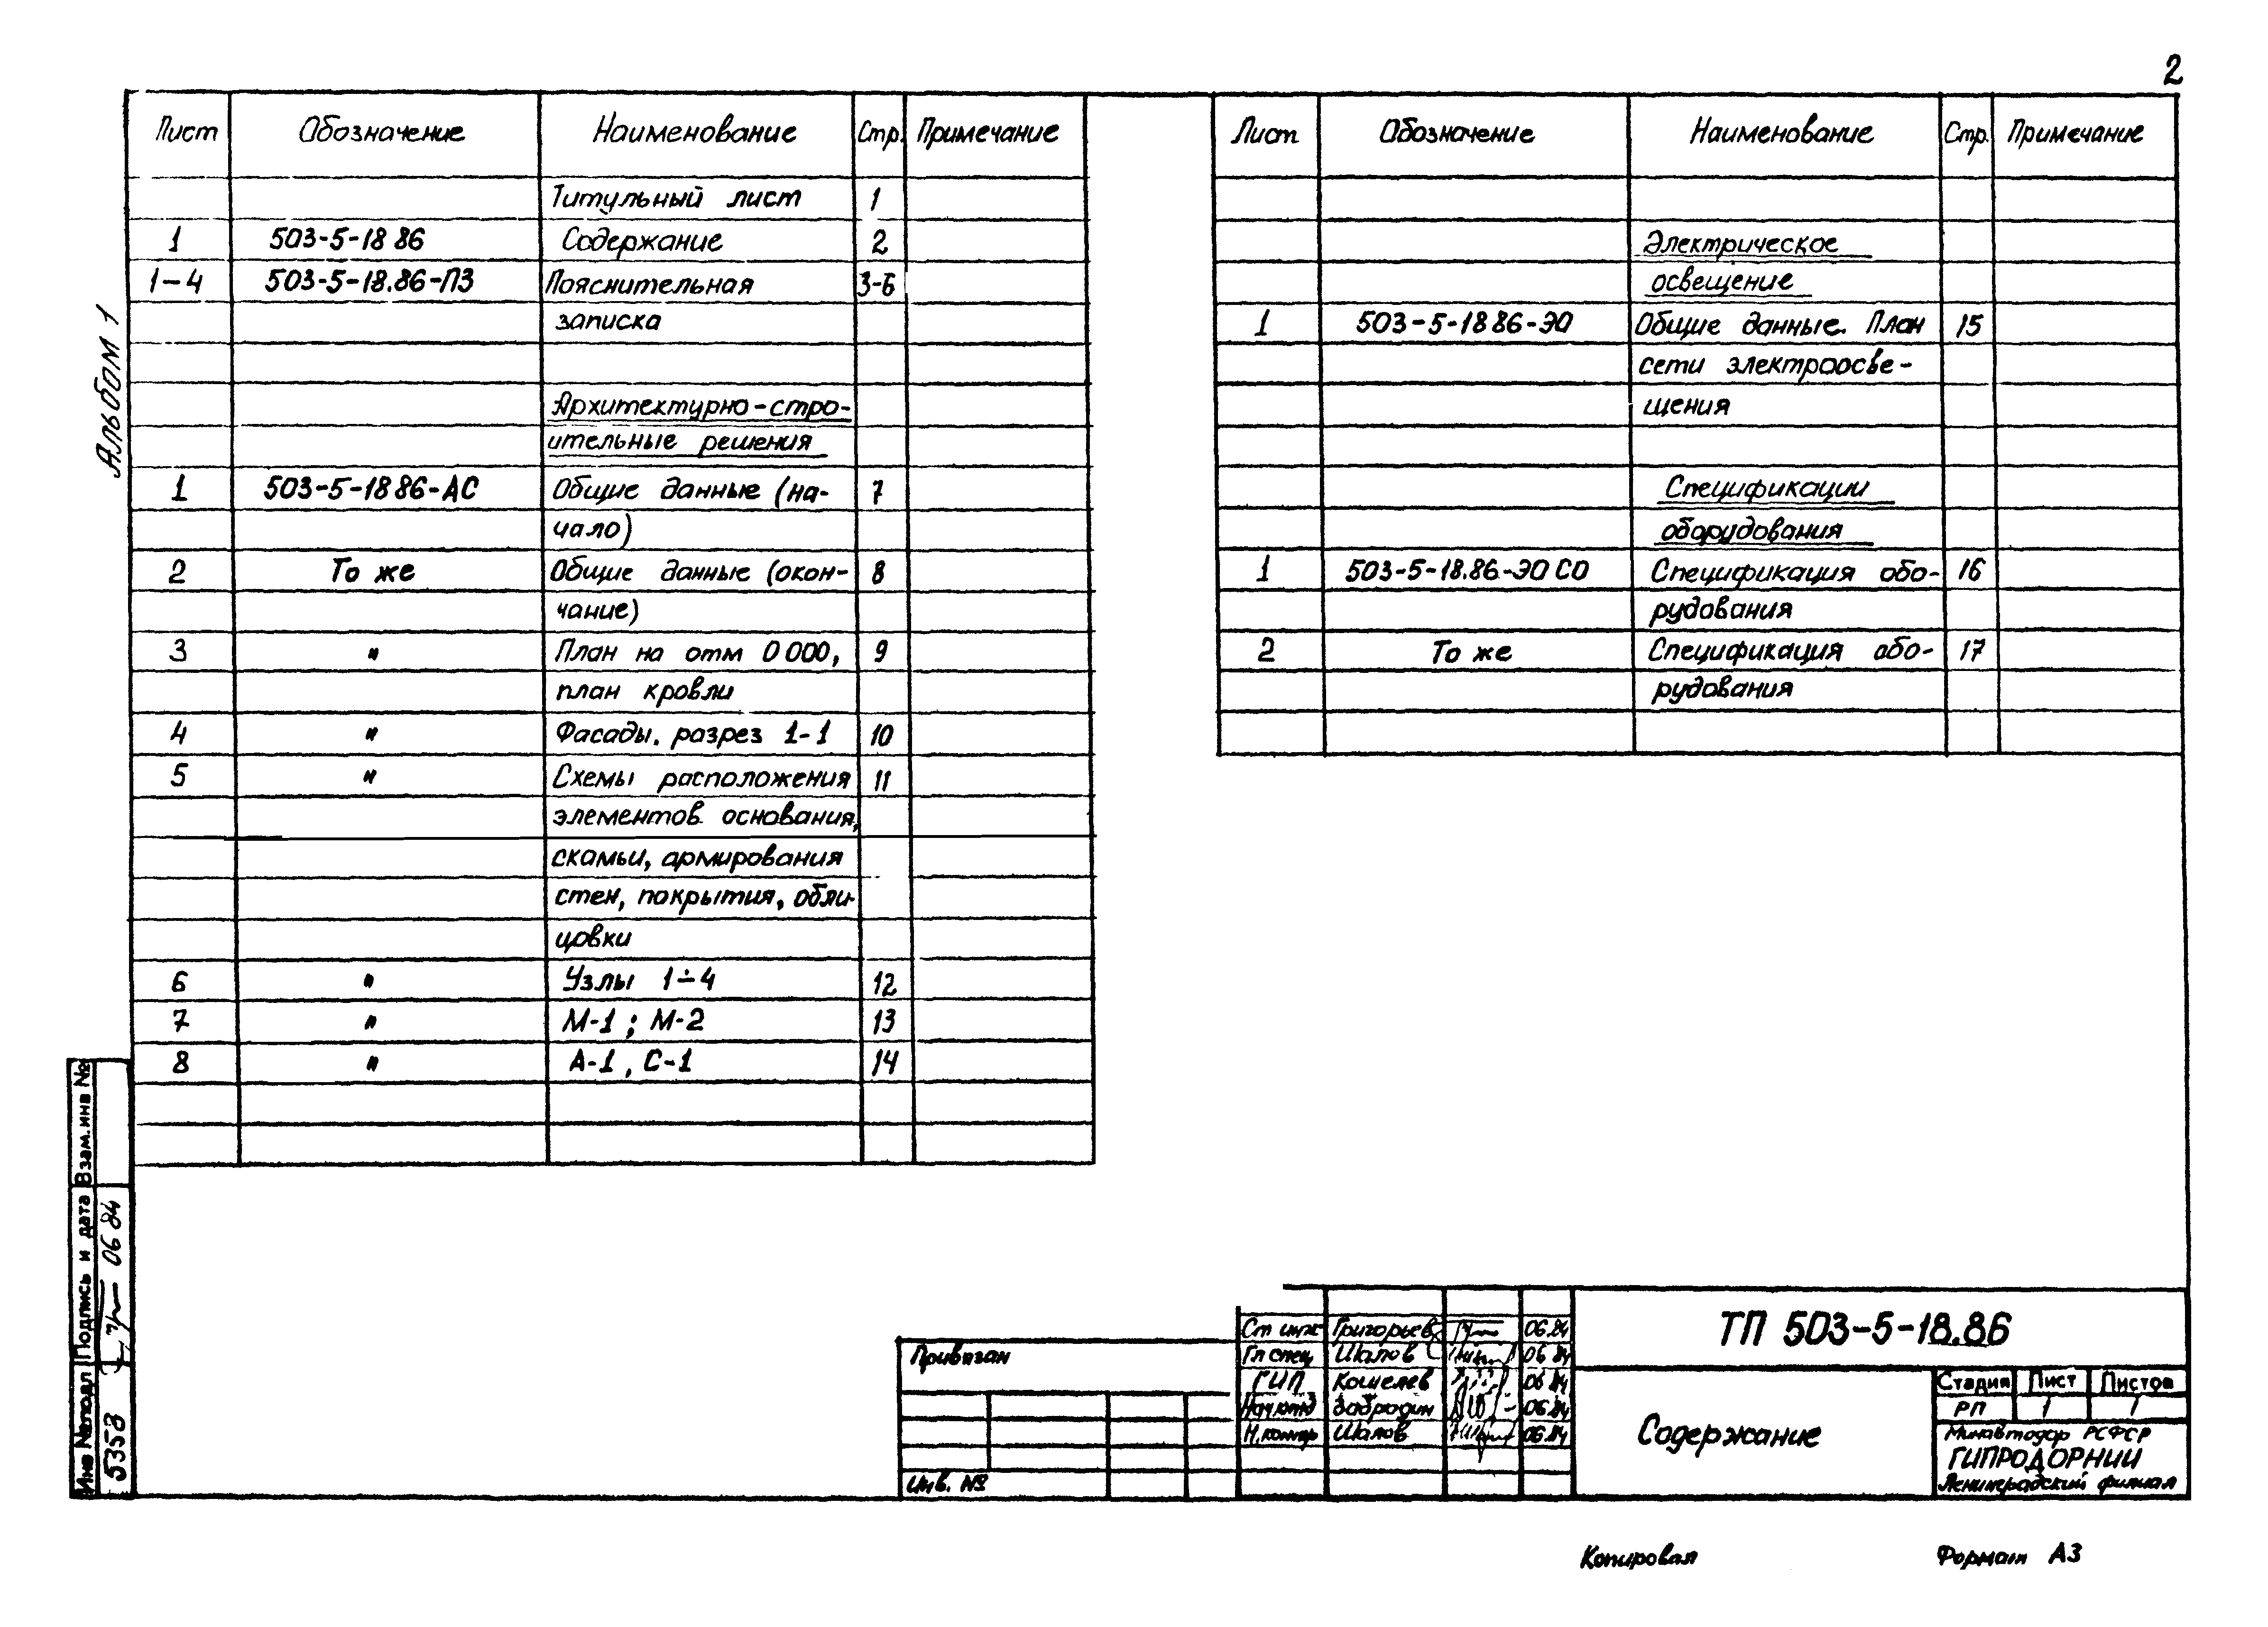 2
Альбом 1
Лист Обозначение Наименование Стр. Примечание
Титульный лист 1
1 503-5-18 86 Содержание 2
1-4 503-5-18.86-ПЗ Пояснительная 3-6
записка
Архитектурно-стро-
ительные решения
1 503-5-18 86-АС Общие данные (на- 7
чало)
2 То же Общие данные (окон- 8
чание)
3 " План на отм 0 000, 9
план кровли
4 " Фасады. разрез 1-1 10
5 " Схемы расположения 11
элементов основания,
скамьи, армирования
стен, покрытия, обли-
цовки
6 " Узлы 1÷4 12
7 " М-1 ; М-2 13
8 " А-1, С-1 14
Лист Обозначение Наименование Стр. Примечание
Электрическое
освещение
1 503-5-18 86-ЭО Общие данные. План 15
сети электроосве-
щения
Спецификации
оборудования
1 503-5-18.86-ЭО СО Спецификация обо- 16
рудования
2 То же Спецификация обо- 17
рудования
Взам.инв №
Подпись и дата
06 84
Инв №подл
5358
Привязан
Инв. №
Ст инж Григорьев 06.84
Гл спец Шалов 06 84
ГИП Кошелев 06 84
Нач отд Забродин 06.84
Н.контр Шалов 06.84
ТП 503-5-18.86
Содержание
Стадия Лист Листов
РП 1 1
Минавтодор РСФСР
ГИПРОДОРНИИ
Ленинградский филиал
Копировал Формат А3